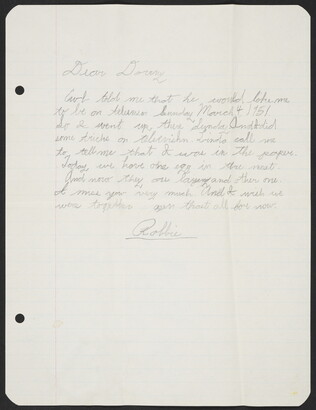 Dear Doren
Carl told me that he would take me
to be on television Sunday March 4 1951.
So I went up this Sunday and did
some tricks on television call me
to tell me that I was in the paper.
Today we have one egg in the nest.
And now they are laying and other one.
I miss you very much And I wish we
were together that all for now.
Robbie